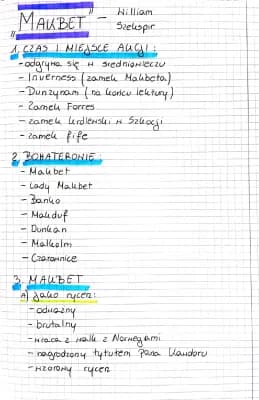 „MAKBET" – William
Szekspir
1. CZAS I MIEJSCE AKCJI:
- odgrywa się w średniowieczu
- Inverness (zamek Makbeta)
- Dunzynam (na końcu lektury)
- Zamek Forres
- zamek królewski w Szkocji
- zamek fife
2. BOHATEROWIE
- Makbet
- Lady Makbet
- Banko
- Makduf
- Dunkan
- Malkolm
- Czarownice
3. MAKBET
A) jako rycerz:
- odważny
- brutalny
- wraca z walk z Norwegami
- nagrodzony tytułem Pana Kawdoru
- wzorowy rycerz